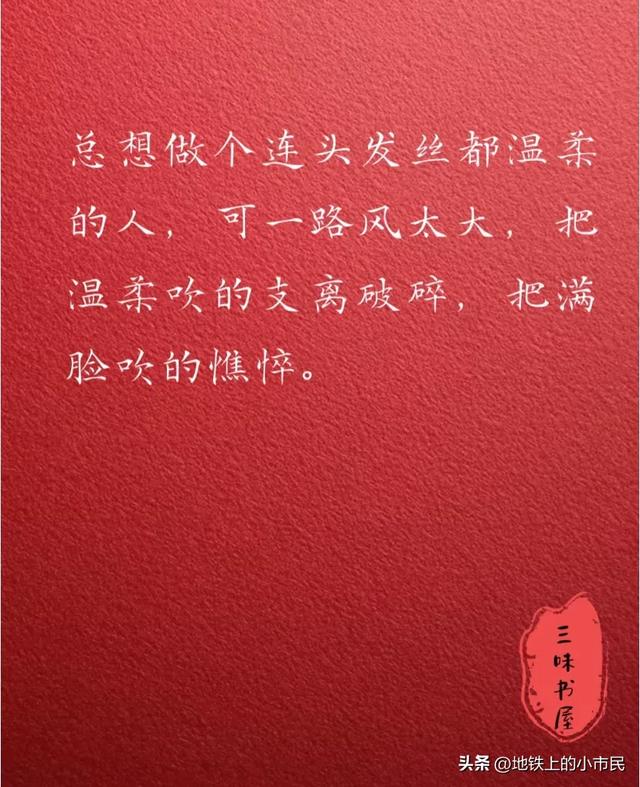 总想做个连头发丝都温柔
的人，可一路风太大，把
温柔吹的支离破碎，把满
脸吹的憔悴。
三味书屋
头条 @地铁上的小市民